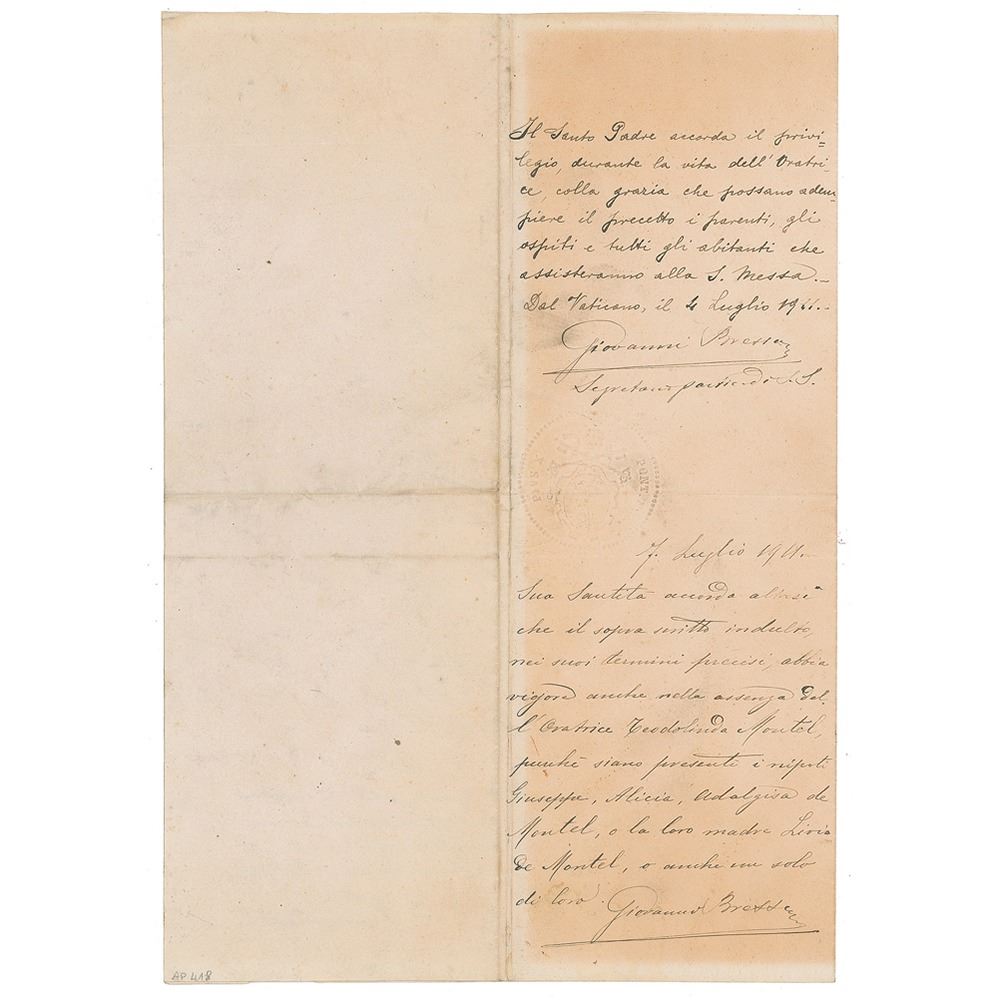 Il Santo Padre accorda il privi=
legio, durante la vita dell'Oratri-
ce, colla grazia che possano adem=
piere il precetto i parenti, gli
ospiti e tutti gli abitanti che
assisteranno alla S. Messa.-
Dal Vaticano, il 4 Luglio 1911.-
Giovanni Bressan
Segretario partic. di S.S.
PIVS X PONT.
7. Luglio 1911.-
Sua Santità accorda altresì
che il sopra scritto indulto,
nei suoi termini precisi, abbia
vigore anche nella assenza del-
l'Oratrice Teodolinda Montel,
purché siano presenti i nipoti
Giuseppe, Alicia, Adalgisa de
Montel, o la loro madre Livia
de Montel, o anche un solo
di loro.
Giovanni Bressan
AP 418